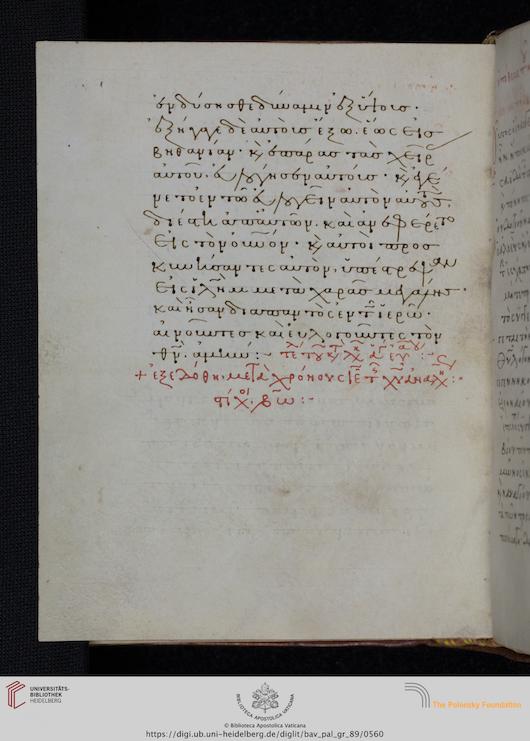 ἐνδύσησθε δύναμιν ἐξ ὕψους ·
ἐξήγαγε δὲ αὐτοὺς ἔξω ἕως εἰς
βηθανίαν · κ ἐπάρας τὰς χεῖρ
αὐτοῦ εὐλόγησεν αὐτούς · κ ἐγέ
νετο ἐν τῶ εὐλογεῖν αὐτὸν αὐτοὺς
διέστη ἀπ αὐτῶν · καὶ ἀνεφέρετο
εἰς τὸν οὐνόν · κ αὐτοὶ προσ
κυνήσαντες αὐτὸν, ὑπέστρεψαν
εἰς ἰλημ μετὰ χαρᾶς μεγάλης ·
καὶ ἦσαν διαπαντὸς ἐν τ ἱερῶ ·
αἰνοῦντες καὶ εὐλογοῦντες τὸν
θν · ἀμήν :-
+ ἐξεδόθη μετὰ χρόνους ιε τ χυ ἀναλ :-
στίχ · βω :-
UNIVERSITÄTS-
BIBLIOTHEK
HEIDELBERG
BIBLIOTECA APOSTOLICA VATICANA
The Polonsky Foundation
© Biblioteca Apostolica Vaticana
https://digi.ub.uni-heidelberg.de/diglit/bav_pal_gr_89/0560